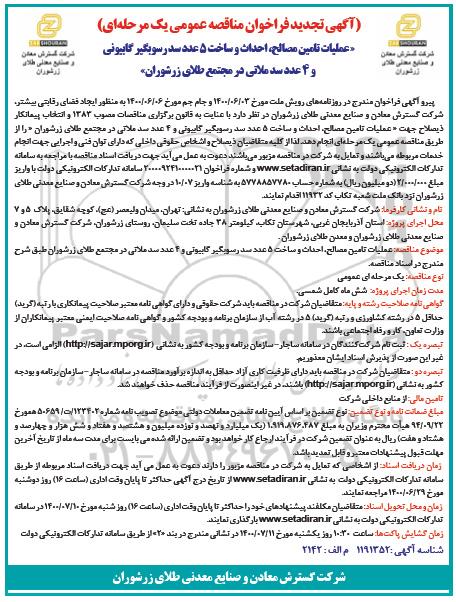 ZAR SHOURAN
شرکت گسترش معادن و صنایع معدنی طلای زرشوران
(آگهی تجدید فراخوان مناقصه عمومی یک مرحله‌ای)
«عملیات تامین مصالح، احداث و ساخت ۵ عدد سد رسوبگیر گابیونی
و ۴ عدد سد ملاتی در مجتمع طلای زرشوران»
ZAR SHOURAN
شرکت گسترش معادن و صنایع معدنی طلای زرشوران
پیرو آگهی فراخوان مندرج در روزنامه‌های رویش ملت مورخ ۱۴۰۰/۰۶/۰۳ و جام جم مورخ ۱۴۰۰/۰۶/۰۶ به منظور ایجاد فضای رقابتی بیشتر،
شرکت گسترش معادن و صنایع معدنی طلای زرشوران در نظر دارد با عنایت به قانون برگزاری مناقصات مصوب ۱۳۸۳ و انتخاب پیمانکار
ذیصلاح جهت «عملیات تامین مصالح، احداث و ساخت ۵ عدد سد رسوبگیر گابیونی و ۴ عدد سد ملاتی در مجتمع طلای زرشوران» را از
طریق مناقصه عمومی یک مرحله‌ای انجام دهد. لذا از کلیه متقاضیان ذیصلاح واشخاص حقوقی داخلی که دارای توان فنی و اجرایی جهت انجام
خدمات مربوطه می‌باشند و تمایل به شرکت در مناقصه مزبور می‌باشند دعوت به عمل می‌آید جهت دریافت اسناد مناقصه با مراجعه به سامانه
تدارکات الکترونیکی دولت به نشانی www.setadiran.ir و شماره فراخوان ۲۰۰۰۰۹۲۴۱۰۰۰۰۰۲۱ سامانه تدارکات الکترونیکی دولت با واریز
مبلغ ۲/۰۰۰/۰۰۰ (دو میلیون ریال) به شماره حساب ۵۷۷۸۸۵۷۷۸۰ به شناسه واریز ۱۰/۷ در وجه شرکت گسترش معادن و صنایع معدنی طلای
زرشوران نزد بانک ملت شعبه تکاب کد ۱۱۹۳۲ اقدام نمایند.
نام و نشانی کارفرما: شرکت گسترش معادن و صنایع معدنی طلای زرشوران به نشانی: تهران، میدان ولیعصر (عج)، کوچه شقایق، پلاک ۵ و ۷
محل اجرای پروژه: استان آذربایجان غربی، شهرستان تکاب، کیلومتر ۳۸ جاده تخت سلیمان، روستای زرشوران، شرکت گسترش معادن و
صنایع معدنی طلای زرشوران و معدن طلای زرشوران.
موضوع مناقصه: عملیات تامین مصالح، احداث و ساخت ۵ عدد سد رسوبگیر گابیونی و ۴ عدد سد ملاتی در مجتمع طلای زرشوران طبق شرح
مندرج در اسناد مناقصه.
نوع مناقصه: یک مرحله ای عمومی
مدت زمان اجرای پروژه: شش ماه کامل شمسی.
گواهی نامه صلاحیت رشته و پایه: متقاضیان شرکت در مناقصه باید شرکت حقوقی و دارای گواهی نامه معتبر صلاحیت پیمانکاری با رتبه (گرید)
حداقل ۵ در رشته کشاورزی و رتبه (گرید) ۵ در رشته آب از سازمان برنامه و بودجه کشور و گواهی نامه صلاحیت ایمنی معتبر پیمانکاران از
وزارت تعاون، کار و رفاه اجتماعی باشند.
تبصره یک: ثبت نام شرکت‌کنندگان در سامانه ساجار – سازمان برنامه و بودجه کشور به نشانی (http://sajar.mporg.ir) الزامی است، در
غیر این صورت از پذیرش اسناد ایشان معذوریم.
تبصره دو: متقاضیان شرکت در مناقصه باید دارای ظرفیت کاری آزاد حداقل به اندازه برآورد مناقصه در سامانه ساجار – سازمان برنامه و بودجه
کشور به نشانی (http://sajar.mporg.ir) باشند، در غیر اینصورت از فرآیند مناقصه حذف خواهند شد.
تامین مالی: از منابع داخلی شرکت
مبلغ ضمانت نامه و نوع تضمین: نوع تضمین بر اساس آیین نامه تضمین معاملات دولتی موضوع تصویب نامه شماره ۱۲۳۴۰۲/ت۵۰۶۵۹ه مورخ
۹۴/۰۹/۲۲ هیأت محترم وزیران به مبلغ ۱،۹۱۹،۸۷۶،۴۸۷ (یک میلیارد و نهصد و نوزده میلیون و هشتصد و هفتاد و شش هزار و چهارصد و
هشتاد و هفت) ریال به عنوان تضمین شرکت در فرآیند ارجاع کار خواهد بود و تضمین ارائه شده می بایست برای مدت سه ماه از تاریخ آخرین
مهلت قبول پیشنهادات معتبر و قابل تمدید باشد.
زمان دریافت اسناد: از اشخاصی که تمایل به شرکت در مناقصه مزبور را دارند دعوت به عمل می آید جهت دریافت اسناد مربوطه از طریق
سامانه تدارکات الکترونیکی دولت به نشانی www.setadiran.ir از تاریخ درج آگهی حداکثر تا پایان وقت اداری (ساعت ۱۶) روز دوشنبه
مورخ ۱۴۰۰/۰۶/۲۹ مراجعه نمایند.
زمان و محل تحویل اسناد: متقاضیان مکلفند پیشنهادهای خود را حداکثر تا پایان وقت اداری (ساعت ۱۶) روز شنبه مورخ ۱۴۰۰/۰۷/۱۰ در سامانه
تدارکات الکترونیکی دولت به نشانی www.setadiran.ir بارگذاری نمایند.
زمان گشایش پاکت‌ها: ساعت ۱۰:۳۰ روز یکشنبه مورخ ۱۴۰۰/۰۷/۱۱ در نشانی مندرج در بند «۲» از طریق سامانه تدارکات الکترونیکی دولت
شناسه آگهی: ۱۱۹۱۳۵۲ م الف: ۲۱۴۲
شرکت گسترش معادن و صنایع معدنی طلای زرشوران